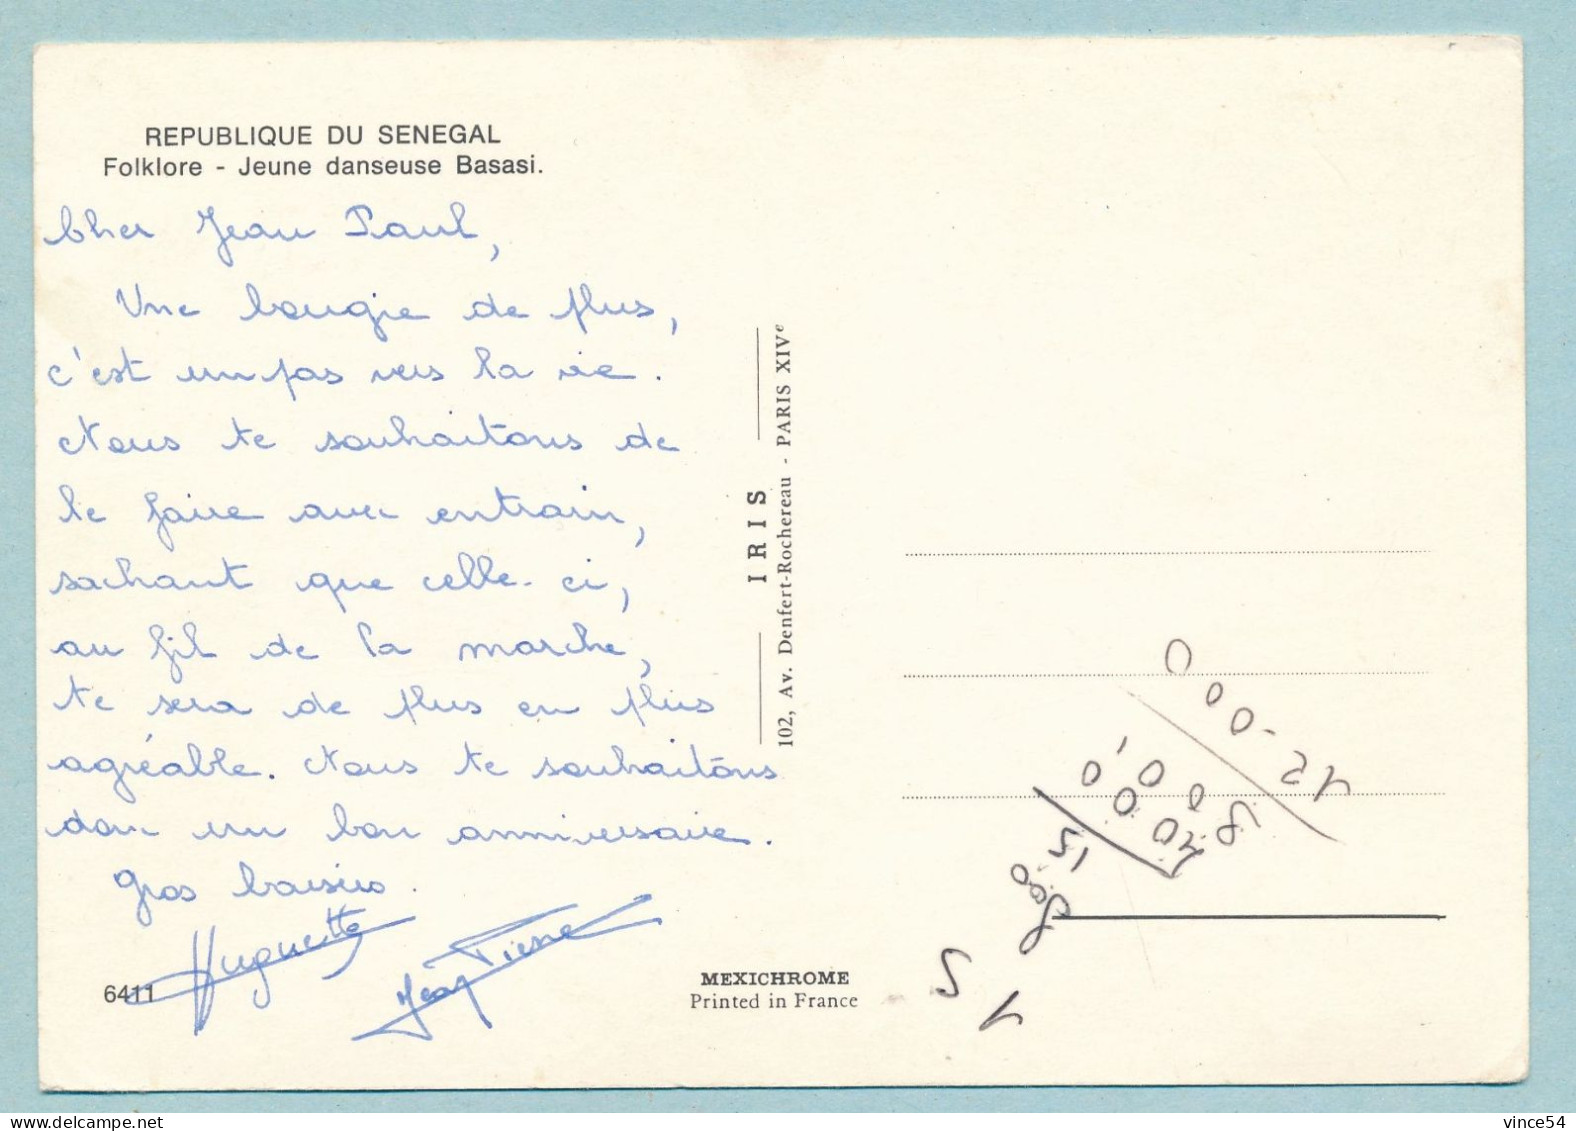 REPUBLIQUE DU SENEGAL
Folklore - Jeune danseuse Basasi.
Cher Jean Paul,
Une bougie de plus,
c'est un pas vers la vie.
Nous te souhaitons de
le faire avec entrain,
sachant que celle-ci,
au fil de la marche,
te sera de plus en plus
agréable. Nous te souhaitons
donc un bon anniversaire.
Gros baisers.
Huguette
Jean Pierre
6411
IRIS
102, Av. Denfert-Rochereau - PARIS XIVe
MEXICHROME
Printed in France
vince54